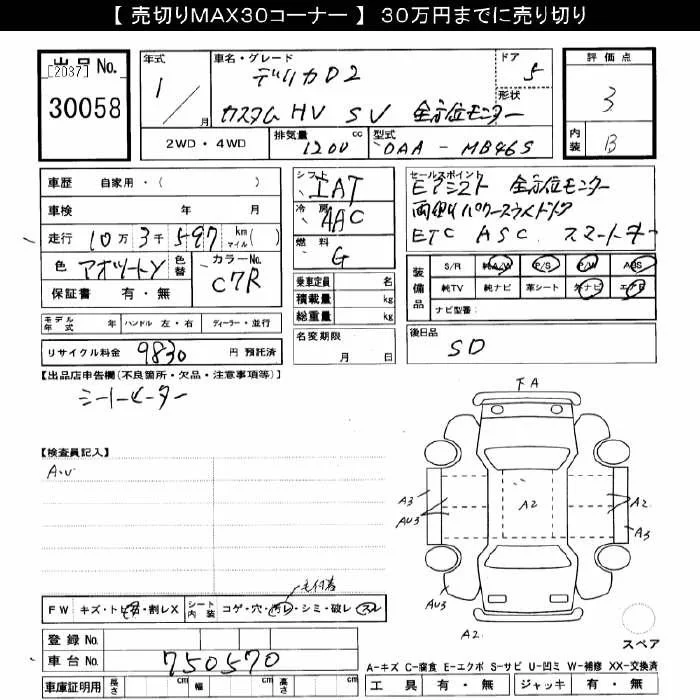 【 売切りMAX30コーナー 】 30万円までに売り切り
出品No.
[2037]
30058
年式
1
月
車名・グレード
デリカD2
カスタム HV SV 全方位モニター
ドア
5
形状
評価点
3
内装
B
2WD・4WD
排気量
1200 cc
型式
DAA - MB46S
車歴 自家用・( )
車検 年 月
走行 10万 3千 597 km マイル ( )
色 アオツートン 色替
カラーNo. C7R
保証書 有・無
シフト
IAT
冷房
AAC
燃料
G
乗車定員 名
積載量 kg
総重量 kg
セールスポイント
Eアシスト 全方位モニター
両側パワースライドドア
ETC ASC スマートキー
装備品
S/R 純A/W P/S P/W ABS
純TV 純ナビ 革シート 外ナビ エアB
ナビ型番:
モデル年式 年 ハンドル 左・右 ディーラー・並行
リサイクル料金 9830 円 預託済
名変期限
月 日
後日品
SD
【出品店申告欄(不良箇所・欠品・注意事項等)】
シートヒーター
【検査員記入】
A.U
FA
A3
AU3
A2
A2
A3
AU3
A2
スペア
毛付着
FW キズ・トビ石・割レX シート内装 コゲ・穴・汚レ・シミ・破レ スレ
登録No.
車台No. 750570
車庫証明用 長さ cm 幅 cm 高さ cm
A-キズ C-腐食 E-エクボ S-サビ U-凹ミ W-補修 XX-交換済
工具 有・無 ジャッキ 有・無